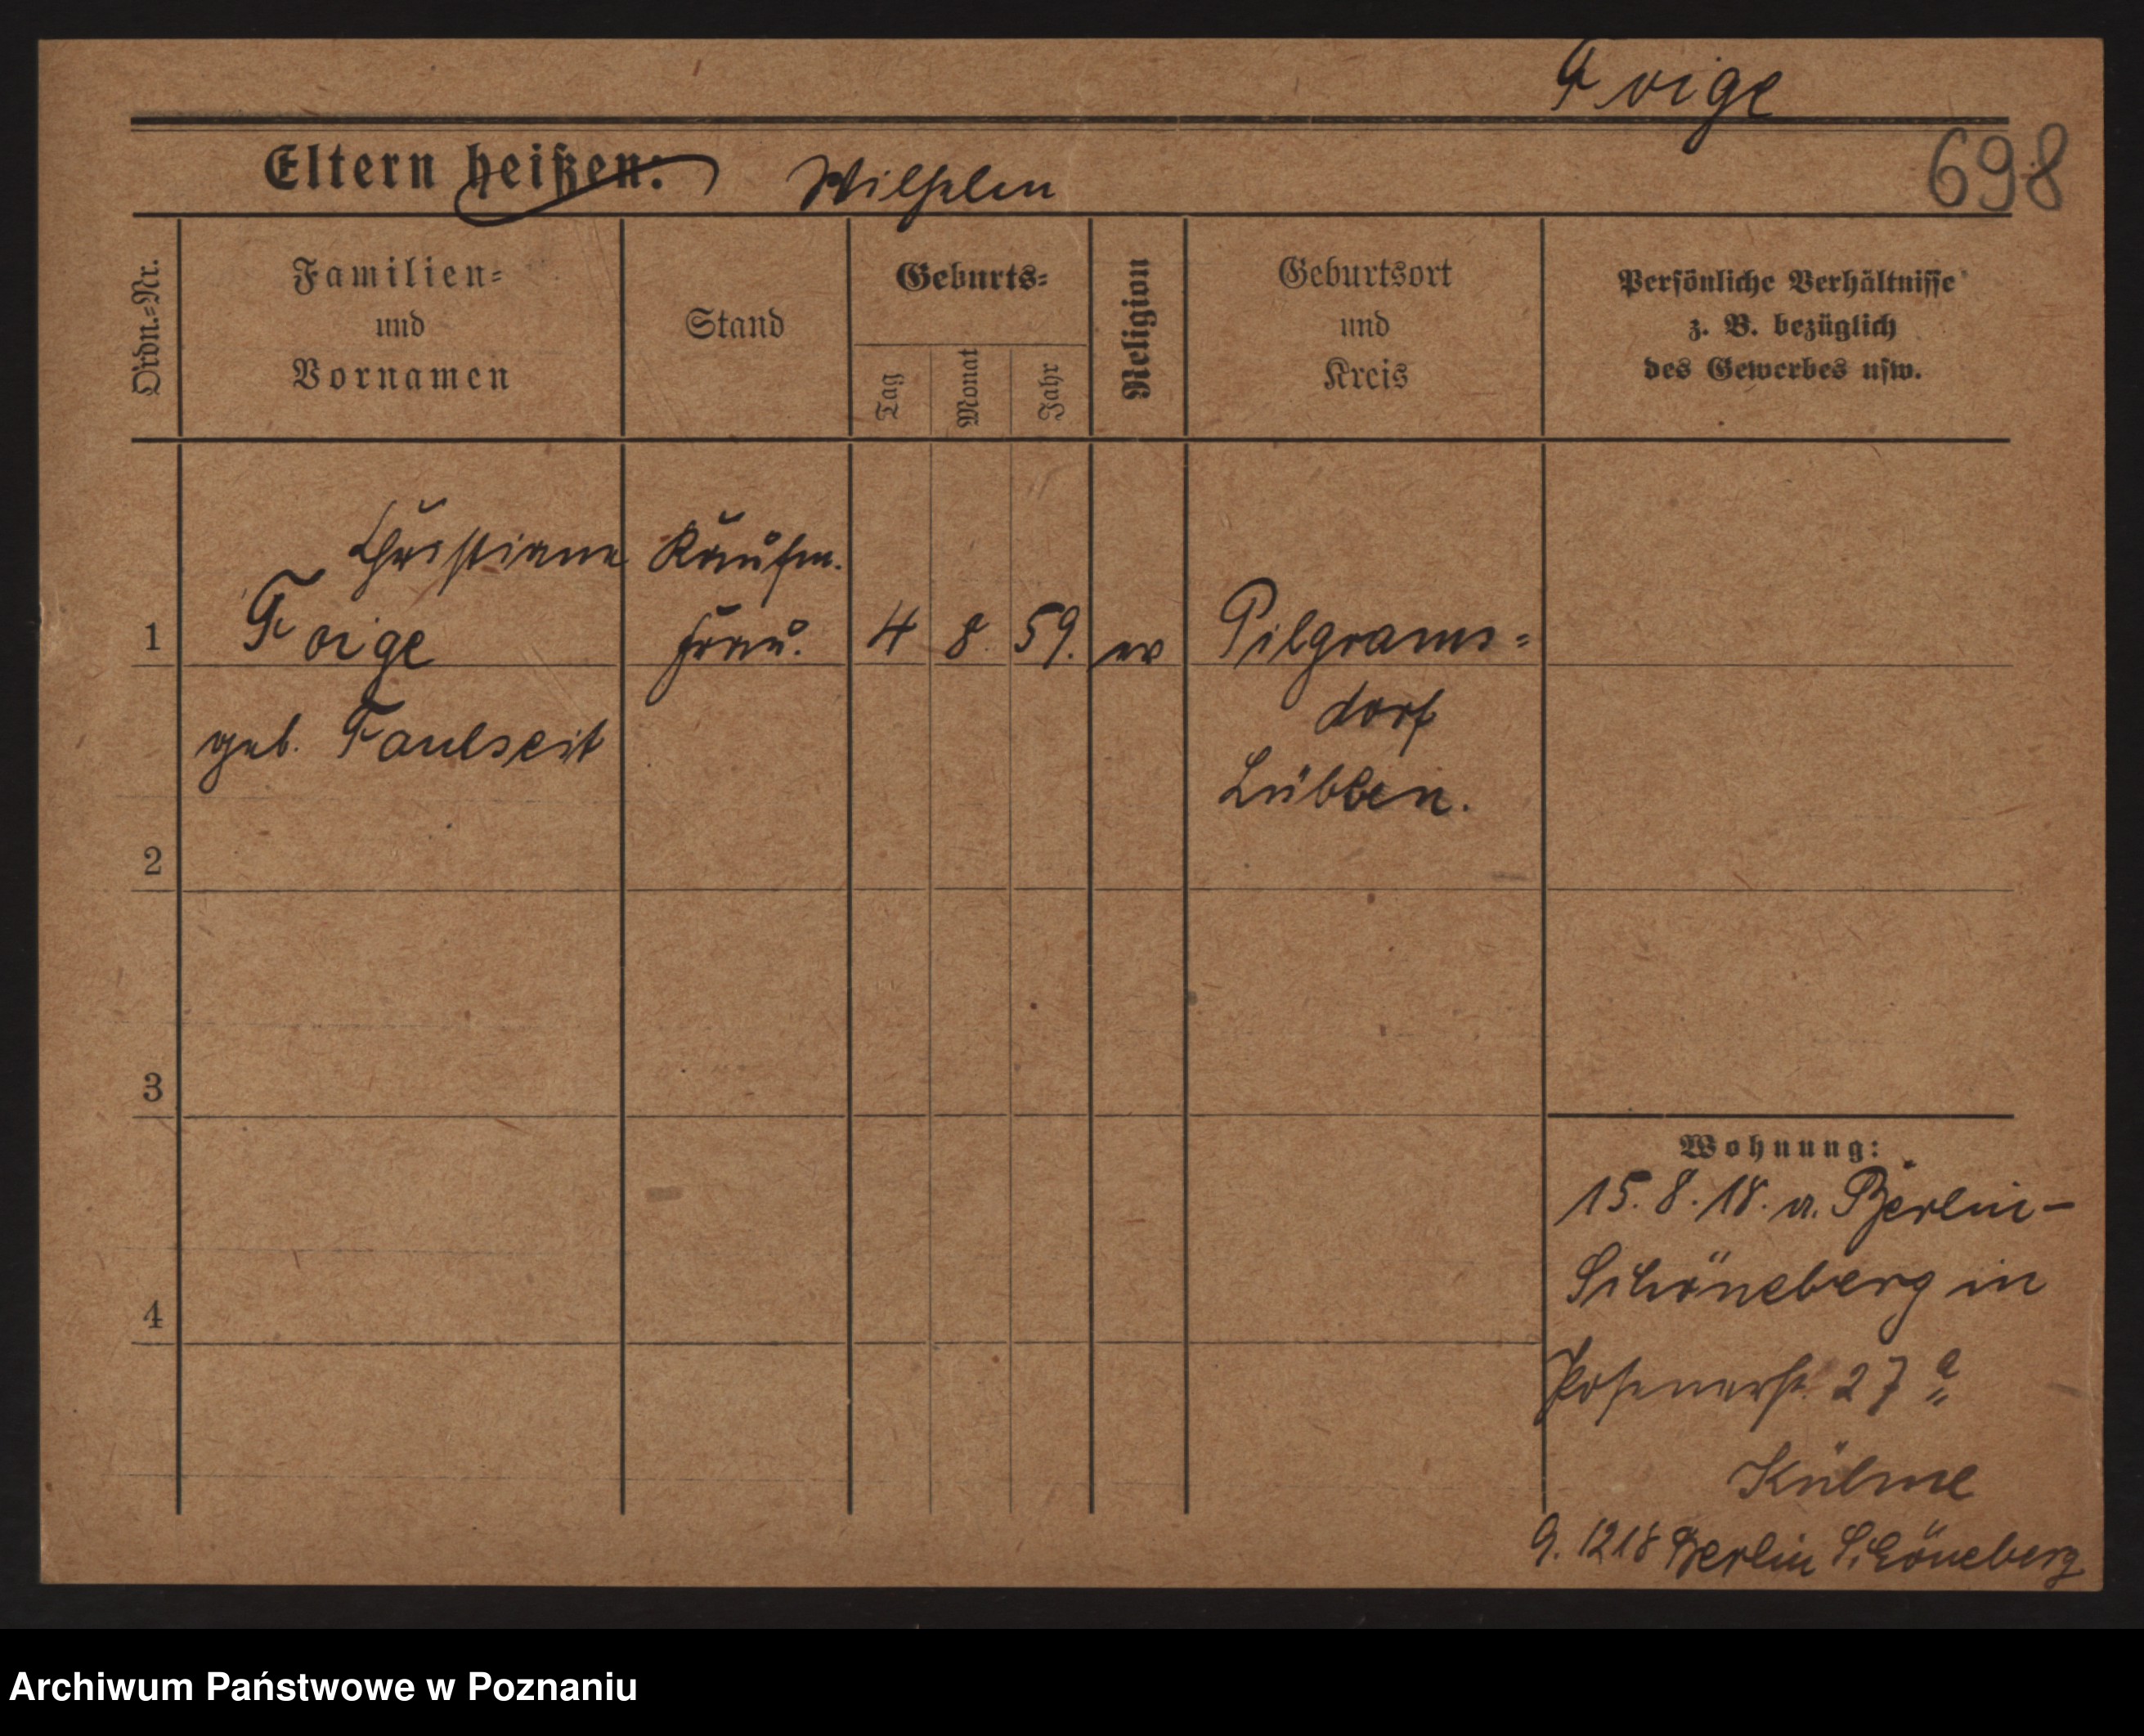 Foige
Eltern heißen: Wilhelm
698
Ordn.-Nr.
Familien-
und
Vornamen
Stand
Geburts-
Tag
Monat
Jahr
Religion
Geburtsort
und
Kreis
Persönliche Verhältnisse
z. B. bezüglich
des Gewerbes usw.
Christiane Kaufm.
1 Foige frau. 4 8. 59. ev Pilgrams-
dorf
geb. Faulseit
Lübben.
2
3
Wohnung:
15. 8. 18. a. Berlin-
Schöneberg in
4
Posenerst. 27 a
9. 12 18 Berlin Schöneberg
Archiwum Państwowe w Poznaniu